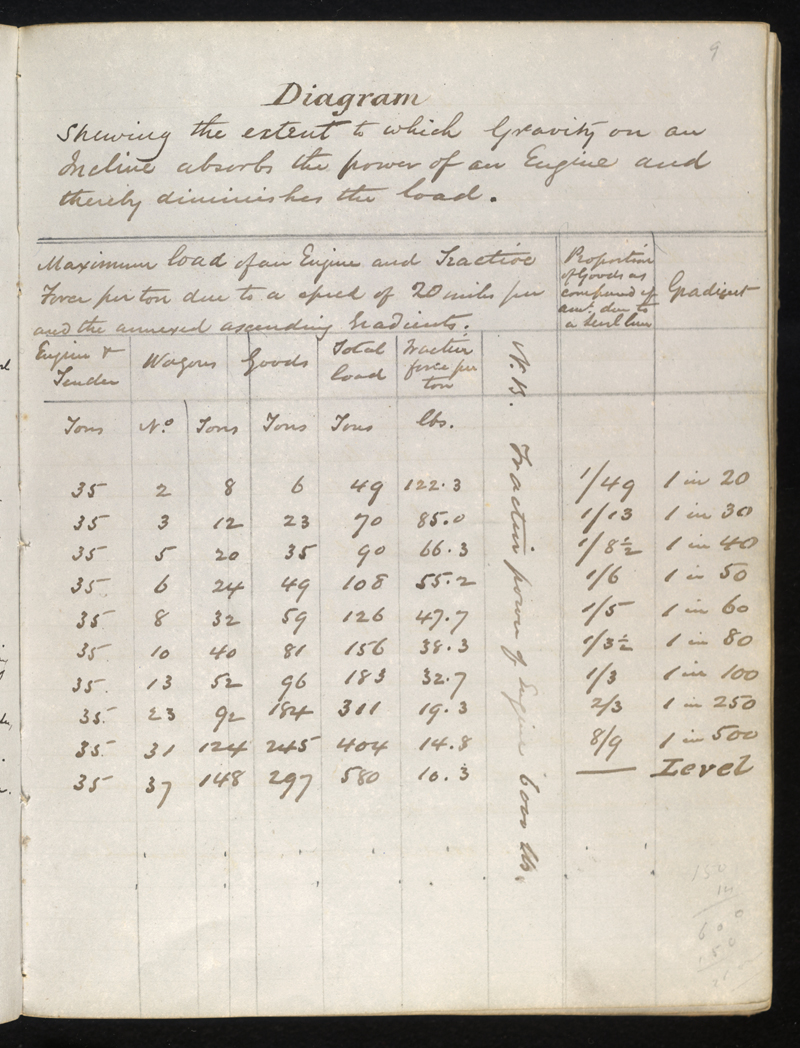 9
Diagram
Shewing the extent to which Gravity on an
Incline absorbs the power of an Engine and
thereby diminishes the load.
Maximum load of an Engine and Tractive
Force per ton due to a speed of 20 miles per
and the annexed ascending Gradients.
Proportion
of Goods as
compared of
amt. due to
a Level line
Gradient
Engine & Tender | Wagons | Goods | Total load | Tractive force per ton
Tons | No. | Tons | Tons | Tons | lbs.
35 | 2 | 8 | 6 | 49 | 122.3 | 1/49 | 1 in 20
35 | 3 | 12 | 23 | 70 | 85.0 | 1/13 | 1 in 30
35 | 5 | 20 | 35 | 90 | 66.3 | 1/8½ | 1 in 40
35 | 6 | 24 | 49 | 108 | 55.2 | 1/6 | 1 in 50
35 | 8 | 32 | 59 | 126 | 47.7 | 1/5 | 1 in 60
35 | 10 | 40 | 81 | 156 | 38.3 | 1/3½ | 1 in 80
35 | 13 | 52 | 96 | 183 | 32.7 | 1/3 | 1 in 100
35 | 23 | 92 | 184 | 311 | 19.3 | 2/3 | 1 in 250
35 | 31 | 124 | 245 | 404 | 14.8 | 8/9 | 1 in 500
35 | 37 | 148 | 297 | 580 | 10.3 | — | Level
N.B. Tractive power of Engine 6000 lb.